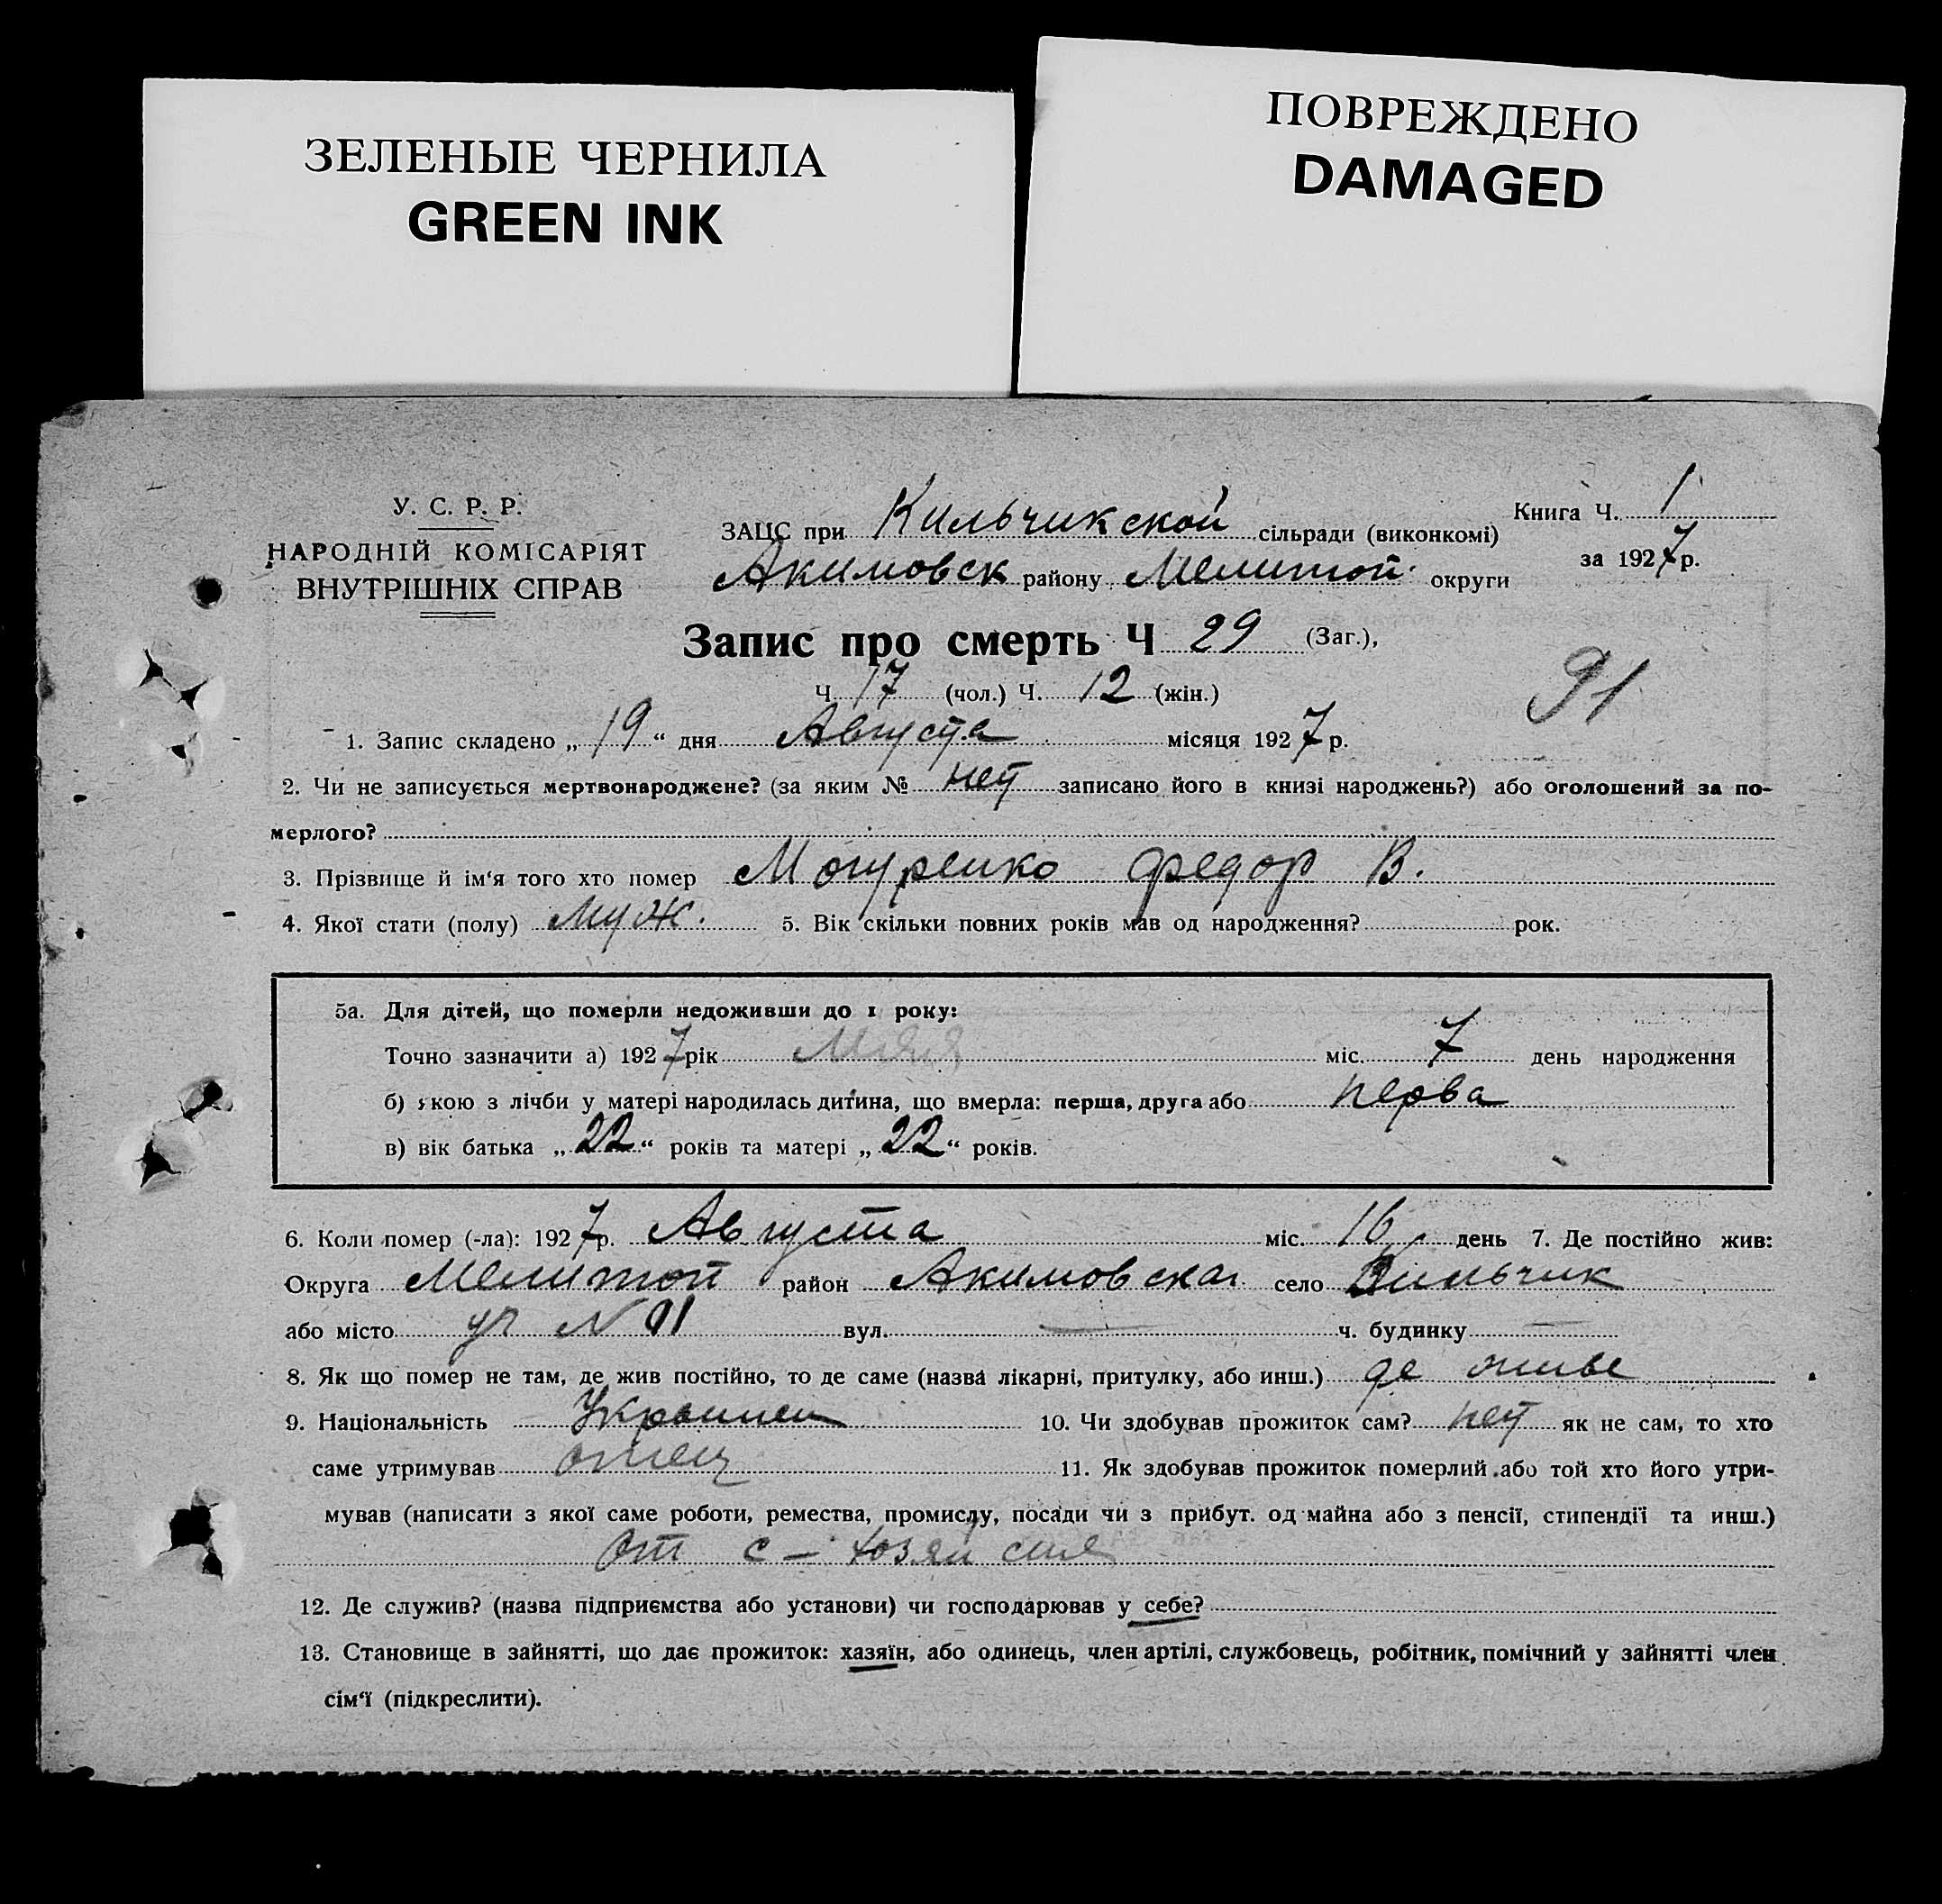 ЗЕЛЕНЫЕ ЧЕРНИЛА
GREEN INK
ПОВРЕЖДЕНО
DAMAGED
У. С. Р. Р.
НАРОДНІЙ КОМІСАРІЯТ
ВНУТРІШНІХ СПРАВ
ЗАЦС при Кильчикской сільради (виконкомі)
Акимовск району Мелитоп. округи
Книга Ч. 1
за 1927 р.
Запис про смерть Ч 29 (Заг.),
Ч. 17 (чол.) Ч. 12 (жін.)
91
1. Запис складено „19“ дня Августа місяця 1927 р.
2. Чи не записується мертвонароджене? (за яким № нет записано його в книзі народжень?) або оголошений за по-
мерлого?
3. Прізвище й ім‘я того хто помер Могуренко Федор В.
4. Якої стати (полу) Муж. 5. Вік скільки повних років мав од народження? рок.
5а. Для дітей, що померли недоживши до 1 року:
Точно зазначити а) 1927 рік Мая міс. 7 день народження
б) якою з лічби у матері народилась дитина, що вмерла: перша, друга або перва
в) вік батька „22“ років та матері „22“ років.
6. Коли помер (-ла): 1927 р. Августа міс. 16 день 7. Де постійно жив:
Округа Мелитоп район Акимовска село Кильчик
або місто уч N 1 вул. — ч. будинку —
8. Як що помер не там, де жив постійно, то де саме (назва лікарні, притулку, або инш.) де живе
9. Національність Украинец 10. Чи здобував прожиток сам? нет як не сам, то хто
саме утримував отец 11. Як здобував прожиток померлий або той хто його утри-
мував (написати з якої саме роботи, ремества, промислу, посади чи з прибут. од майна або з пенсії, стипендії та инш.)
От с – хозяйства
12. Де служив? (назва підприємства або установи) чи господарював у себе?
13. Становище в зайнятті, що дає прожиток: хазяїн, або одинець, член артілі, службовець, робітник, помічний у зайнятті член
сім‘ї (підкреслити).